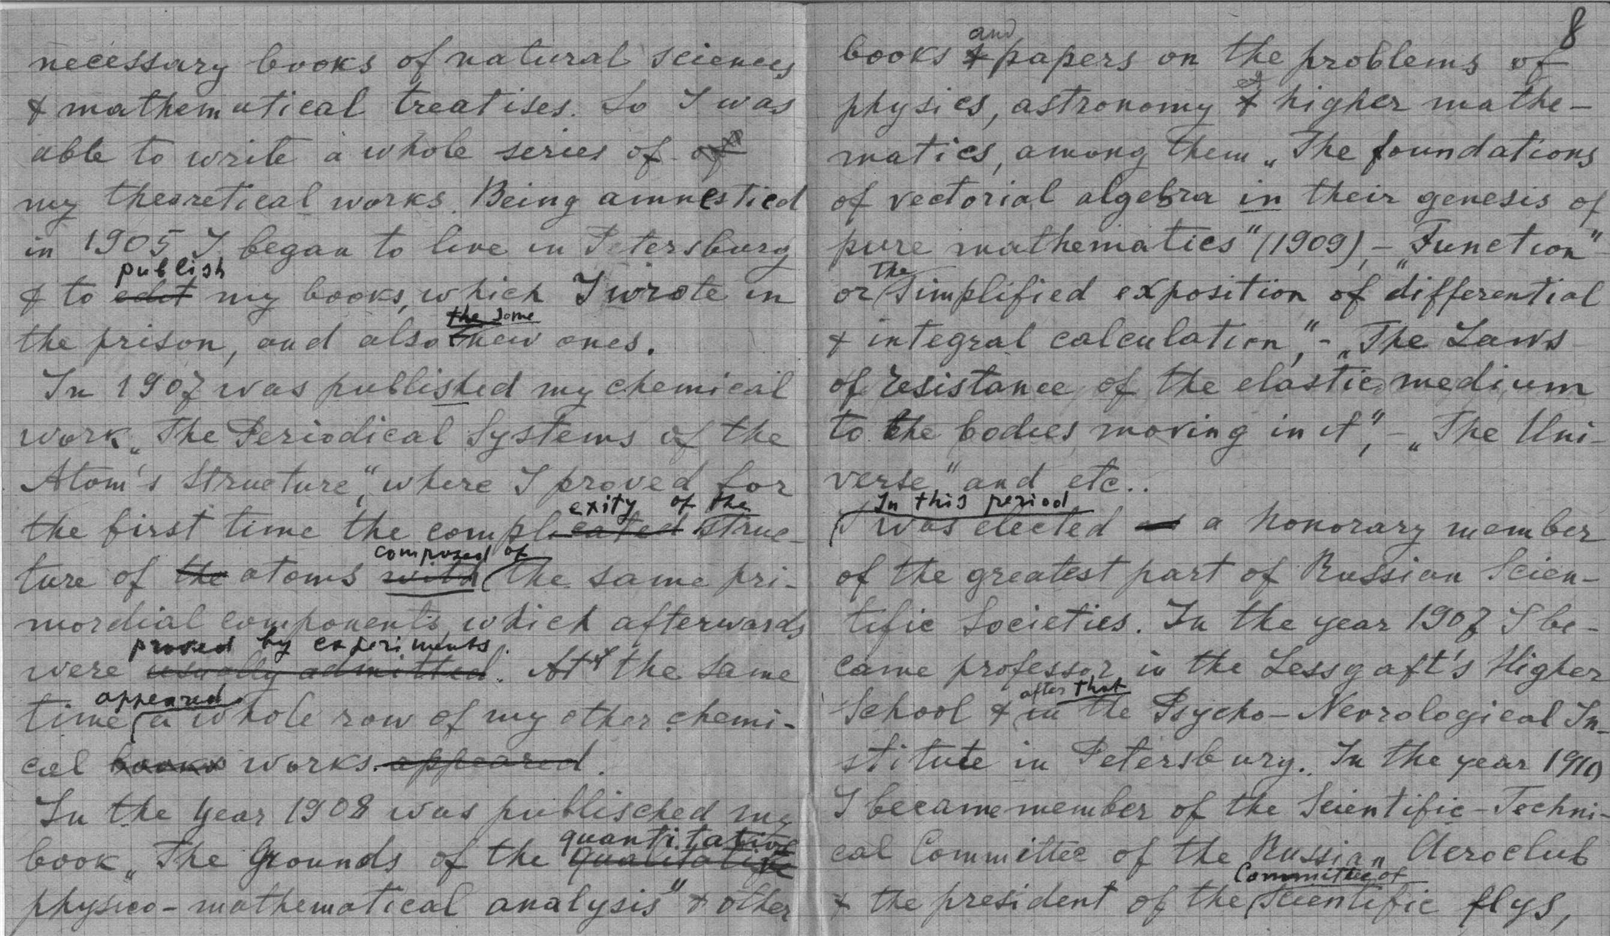 necessary books of natural sciences
& mathematical treatises. So I was
able to write a whole series of
my theoretical works. Being amnestied
in 1905 I began to live in Petersburg
publish
& to edit my books, which I wrote in
the some
the prison, and also new ones.
In 1907 was published my chemical
work „The Periodical Systems of the
Atom's Structure", where I proved for
exity of the
the first time the complicated struc-
composed of
ture of the atoms with the same pri-
mordial components which afterwards
proved by experiments.
were usually admitted. At the same
appeared
time a whole row of my other chemi-
cal books works appeared.
In the year 1908 was publisched my
quantitative
book „The Grounds of the qualitative
physico-mathematical analysis" & other
8
and
books & papers on the problems of
physics, astronomy & higher mathe-
matics, among them „The foundations
of vectorial algebra in their genesis of
pure mathematics" (1909), - „Function"
the
or simplified exposition of differential
& integral calculation", - „The Laws
of resistance of the elastic medium
to the bodies moving in it", - „The Uni-
verse" and etc..
In this period
I was elected as a honorary member
of the greatest part of Russian Scien-
tific Societies. In the year 1907 I be-
came professor in the Lessgaft's Higher
after that
School & in the Psycho-Nevrological In-
stitute in Petersburg. In the year 1910
I became member of the Scientific-Techni-
cal Committee of the Russian Aeroclub
Committee of
& the president of the Scientific flys,